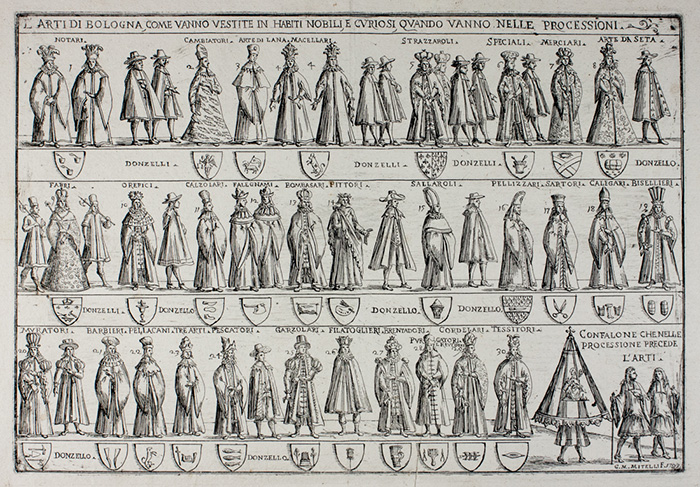 L'ARTI DI BOLOGNA, COME VANNO VESTITE IN HABITI NOBILI, E CVRIOSI QVANDO VANNO NELLE PROCESSIONI.
NOTARI. CAMBIATORI. ARTE DI LANA. MACELLARI. STRAZZAROLI. SPECIALI. MERCIARI. ARTE DA SETA.
1 1 2 3 4 4 8
DONZELLI. DONZELLI. DONZELLI. DONZELLO.
FABRI. OREFICI. CALZOLARI. FALEGNAMI. BOMBASARI. PITTORI. SALLAROLI. PELLIZZARI. SARTORI. CALIGARI. BISELLIERI.
9 10 11 12 13 14 15 16 17 18 19
DONZELLI. DONZELLO. DONZELLO. DONZELLO.
MVRATORI. BARBIERI. PELLACANI. TRE ARTI. PESCATORI. GARZOLARI. FILATOGLIERI. BRENTADORI. CORDELARI. TESSITORI.
20 21 22 23 24 25 26 27 28 30
CONFALONE CHE NELLE
PROCESSIONE PRECEDE
L'ARTI.
DONZELLO. DONZELLO.
G. M. MITELLI F.